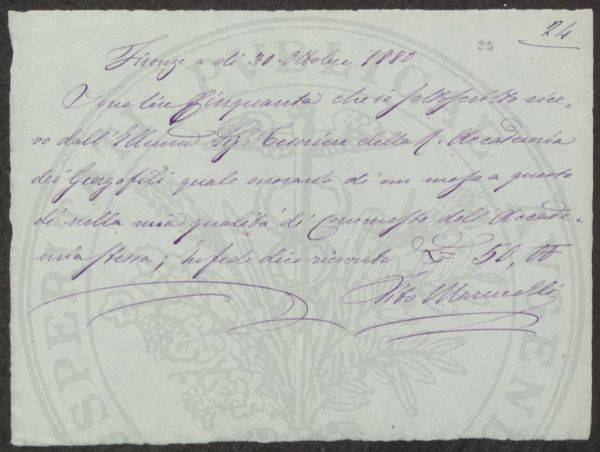 24
25
Firenze a dì 30 Ottobre 1880
Sono lire Cinquanta che io sottoscritto rice-
vo dall' Sig: Tesoriere della R. Accademia
dei Georgofili quale onorario di un mese a questo
dì nella mia qualità di Commesso dell' Accade-
mia stessa; In fede dico ricevute £ 50,00
Vito Marucelli
PROSPERITATI PUBLICAE AUGENDAE